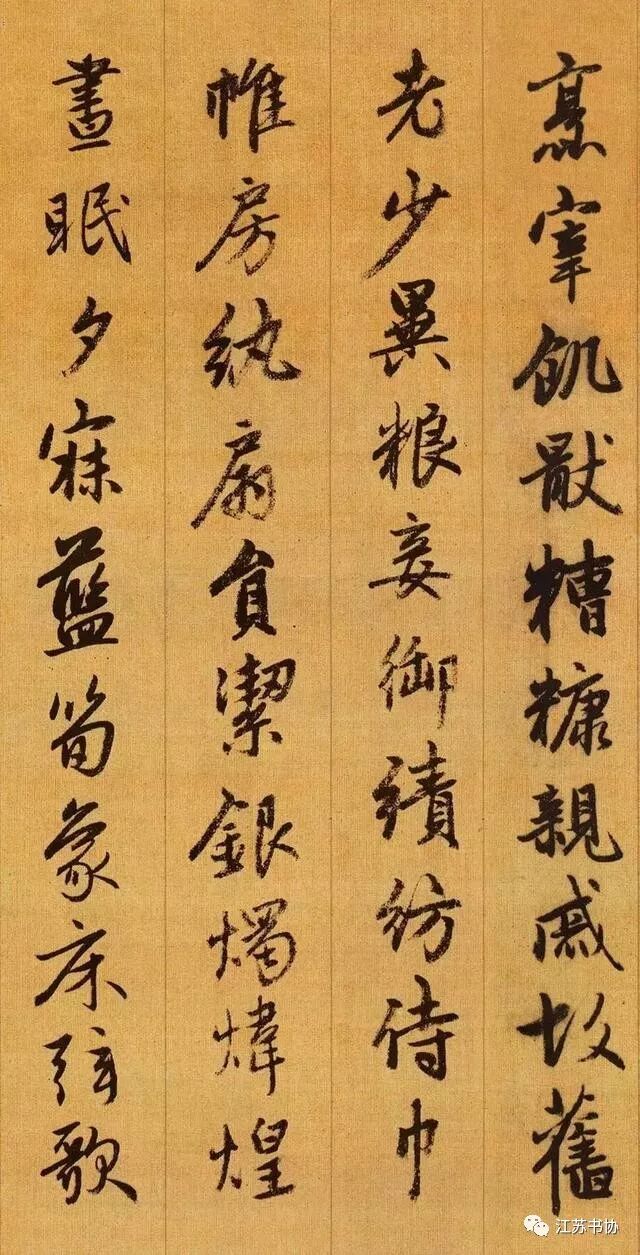 烹宰飢猒糟糠親戚故舊
老少異粮妾御績紡侍巾
帷房紈扇員潔銀燭煒煌
晝眠夕寐藍筍象床弦歌
江苏书协